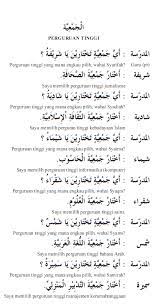 الْجَمْعِيَّةُ
PERGURUAN TINGGI
المدرسة : أَيُّ جَمْعِيَّةٍ تَخْتَارِيْنَ يَا شَرِيْفَةُ ؟
Perguruan tinggi yang mana engkau pilih, wahai Syarifah? Guru (p)
شريفة : أَخْتَارُ جَمْعِيَّةَ الصَّحَافَةِ.
Saya memilih perguruan tinggi jurnalisme
المدرسة : أَيُّ جَمْعِيَّةٍ تَخْتَارِيْنَ يَا شَادِيَةُ ؟
Perguruan tinggi yang mana engkau pilih, wahai Syadiah?
شادية : أَخْتَارُ جَمْعِيَّةَ الثَّقَافَةِ الْإِسْلَامِيَّةِ
Saya memilih perguruan tinggi kebudayaan Islam
المدرسة : أَيُّ جَمْعِيَّةٍ تَخْتَارِيْنَ يَا شَيْمَاءُ ؟
Perguruan tinggi yang mana engkau pilih, wahai Syaima?
شيماء : أَخْتَارُ جَمْعِيَّةَ الْحَاسُوْبِ.
Saya memilih perguruan tinggi informatika (komputer)
المدرسة : أَيُّ جَمْعِيَّةٍ تَخْتَارِيْنَ يَا شَقْرَاءُ ؟
Perguruan tinggi yang mana engkau pilih, wahai Syaqra?
شقراء : أَخْتَارُ جَمْعِيَّةَ الْعُلُوْمِ.
Saya memilih perguruan tinggi sains.
المدرسة : أَيُّ جَمْعِيَّةٍ تَخْتَارِيْنَ يَا شَمْسُ ؟
Perguruan tinggi yang mana engkau pilih, wahai Syamsu?
شمس : أَخْتَارُ جَمْعِيَّةَ اللُّغَةِ الْعَرَبِيَّةِ.
Saya memilih perguruan tinggi bahasa Arab
المدرسة : أَيُّ جَمْعِيَّةٍ تَخْتَارِيْنَ يَا سَمِيْرَةُ ؟
Perguruan tinggi yang mana engkau pilih, wahai Samirah?
سميرة : أَخْتَارُ جَمْعِيَّةَ التَّدْبِيْرِ الْمَنْزِلِيِّ.
Saya memilih perguruan tinggi manajemen kerumahtanggaan